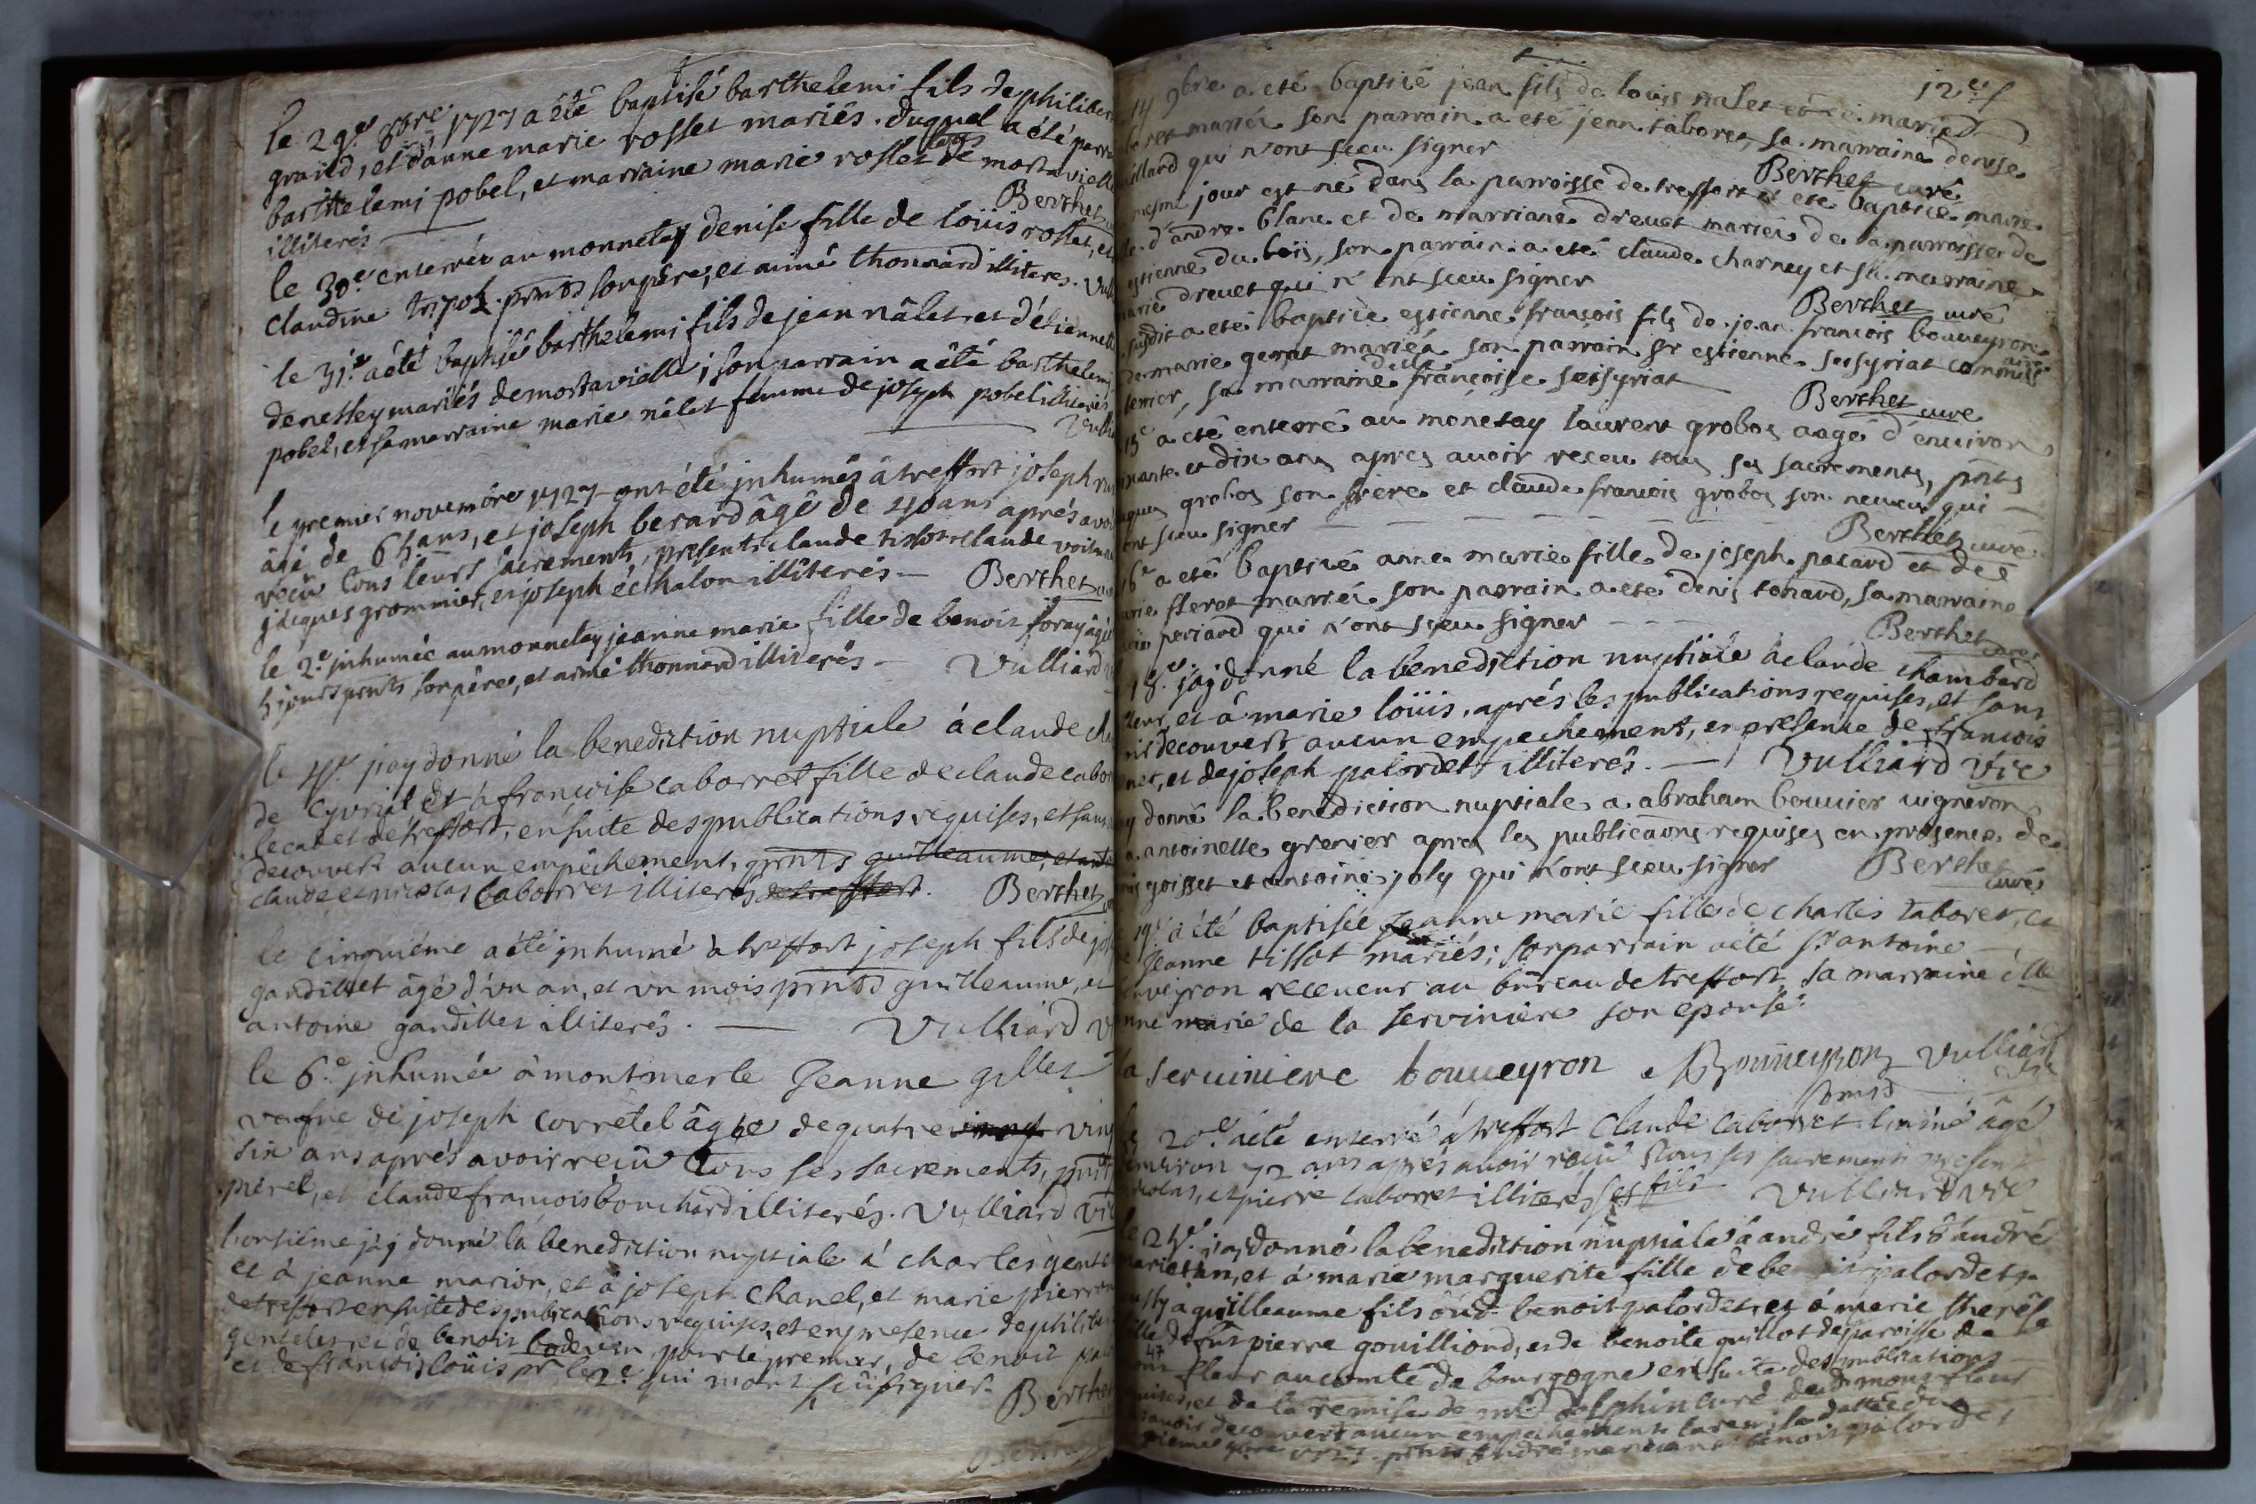 le 29e 8bre 1727 a êtê baptisé barthelemi fils de philiber
graud, et d'anne marie rosset mariés. duquel a été parra
barthelemi pobel, et marraine marie rosset de mortavielle
illiterés Berthet
le 30e enterrée au monnetay denise fille de loüis rosset, et
claudine tripoz. pnts son père, et aimé thonnard illiteres. Vull
le 31e a été baptisé barthelemi fils de jean nâlet et d'étiennette
denettey mariés de mortavielle ; son parrain a été barthelemi
pobel, et sa marraine marie nâlet femme de joseph pobel illiterés
Vulli
le premier novembre 1727 ont été inhumés à treffort joseph
âgé de 65 ans, et joseph berard âgé de 40 ans aprés avoir
reçu tous leurs sacrements, presents claude tissot claude
jacques grommier, et joseph échalon illiterés — Berthet
le 2e inhumée au monnetay jeanne marie fille de benoit foray âgée
5 jours pnts son père, et aimé thonnard illiterés — Vulliard
le 4e j'ay donné la benediction nuptiale à claude
de Cyvriat et à francoise caborret fille de claude cabor
le cadet de treffort, ensuite des publications requises, et sans
decouvert aucun empêchement, pnts guilleaume, et
claude et nicolas caborret illiterés de treffort. Berthet
le cinquiéme a été inhumé à treffort joseph fils de jos
gandillet âgé d'un an, et un mois pnts guilleaume, et
antoine gandillet illiterés. — Vulliard v
le 6e inhumée à montmerle Jeanne gillet
veufue de joseph Corretel âgée de quatre vingt
six ans aprés avoir reçu tous ses sacrements, pnts
perel, et claude francois bouchard illiterés. Vulliard vic
l'onsiéme j'ay donné la benediction nuptiale à charles gente
et à jeanne marion, et à joseph Chanel, et marie pierr
de treffort ensuite des publications requises, et en presence de philibe
gentelet, et de benoit pour le premier, de benoit
et de francois loüis pr le 2e qui n'ont sçu signer. Berthet
12e f
14 9bre a eté baptisé jean fils de louis nalet et de marie
beret mariés son parrain a eté jean taboret, sa marraine denise
uillard qui n'ont sceu signer Berthet curé
mesme jour est né dans la parroisse de treffort et eté baptisé marie
le d'andré blanc et de marriane dreuet mariés de la parroisse de
estienne du bois, son parrain a eté claude charney et sa marraine
marie dreuet qui n'ont sceu signer Berthet curé
susdit a eté baptisé estienne françois fils de jean françois boueyron
de marie gerat mariés son parrain sr estienne seisyriat commis
fermier, sa marraine dlle françoise seisyriat Berthet curé
15e a eté enterré au monetay laurent grobos aagé d'enuiron
inante et dix ans apres auoir receu tous ses sacrements, pnts
aques grobos son frere et claude francois grobos son neueu qui —
ont sceu signer — — — Berthet curé
16e a eté baptisé anne marie fille de joseph patard et de
arie fleret mariés son parrain a eté denis tonard, sa marraine
periard qui n'ont sceu signer - - - Berthet curé
18e j'ay donné la benediction nuptiale à claude chambard
et à marie loüis, aprés les publications requises, et sans
decouvert aucun empechement, en presence de francois
net, et de joseph palordet illiterés. — Vulliard vic
y donné la benediction nuptiale a abraham bouuier uigneron
a antoinette grenier apres les publicaons requises en presence de
goisset et antoine joly qui n'ont sceu signer Berthet curé
19e a été baptisée Jeanne marie fille de charles taboret, et
Jeanne tissot mariés ; son parrain a été sr antoine —
uveyron receveur au bureau de treffort, sa marraine dlle
nne marie de la serviniere son epouse
la seruiniere boueyron Bouueyron Vulliard
pnts
20e a été enterré à treffort Claude caborret l'ainé âgé
environ 72 ans aprés avoir reçu tous ses sacrements presens
nicolas, et pierre caborret illiterés ses fils Vulliard vic
le 24e j'ay donné la benediction nuptiale à andré fils d'andré
mariettan, et à marie marguerite fille de benoit palordet
à guilleaume fils dud benoit palordet, et à marie therêse
ille de fût pierre gouilliond, et de benoite guillot de paroisse de
47
fleur au comté de bourgogne ensuite des publications
quises, et de la remise de mr dalphin curé dud montfleur
auoir decouvert aucun empechement
9bre 1727. pnts André mariettan benoit palordet